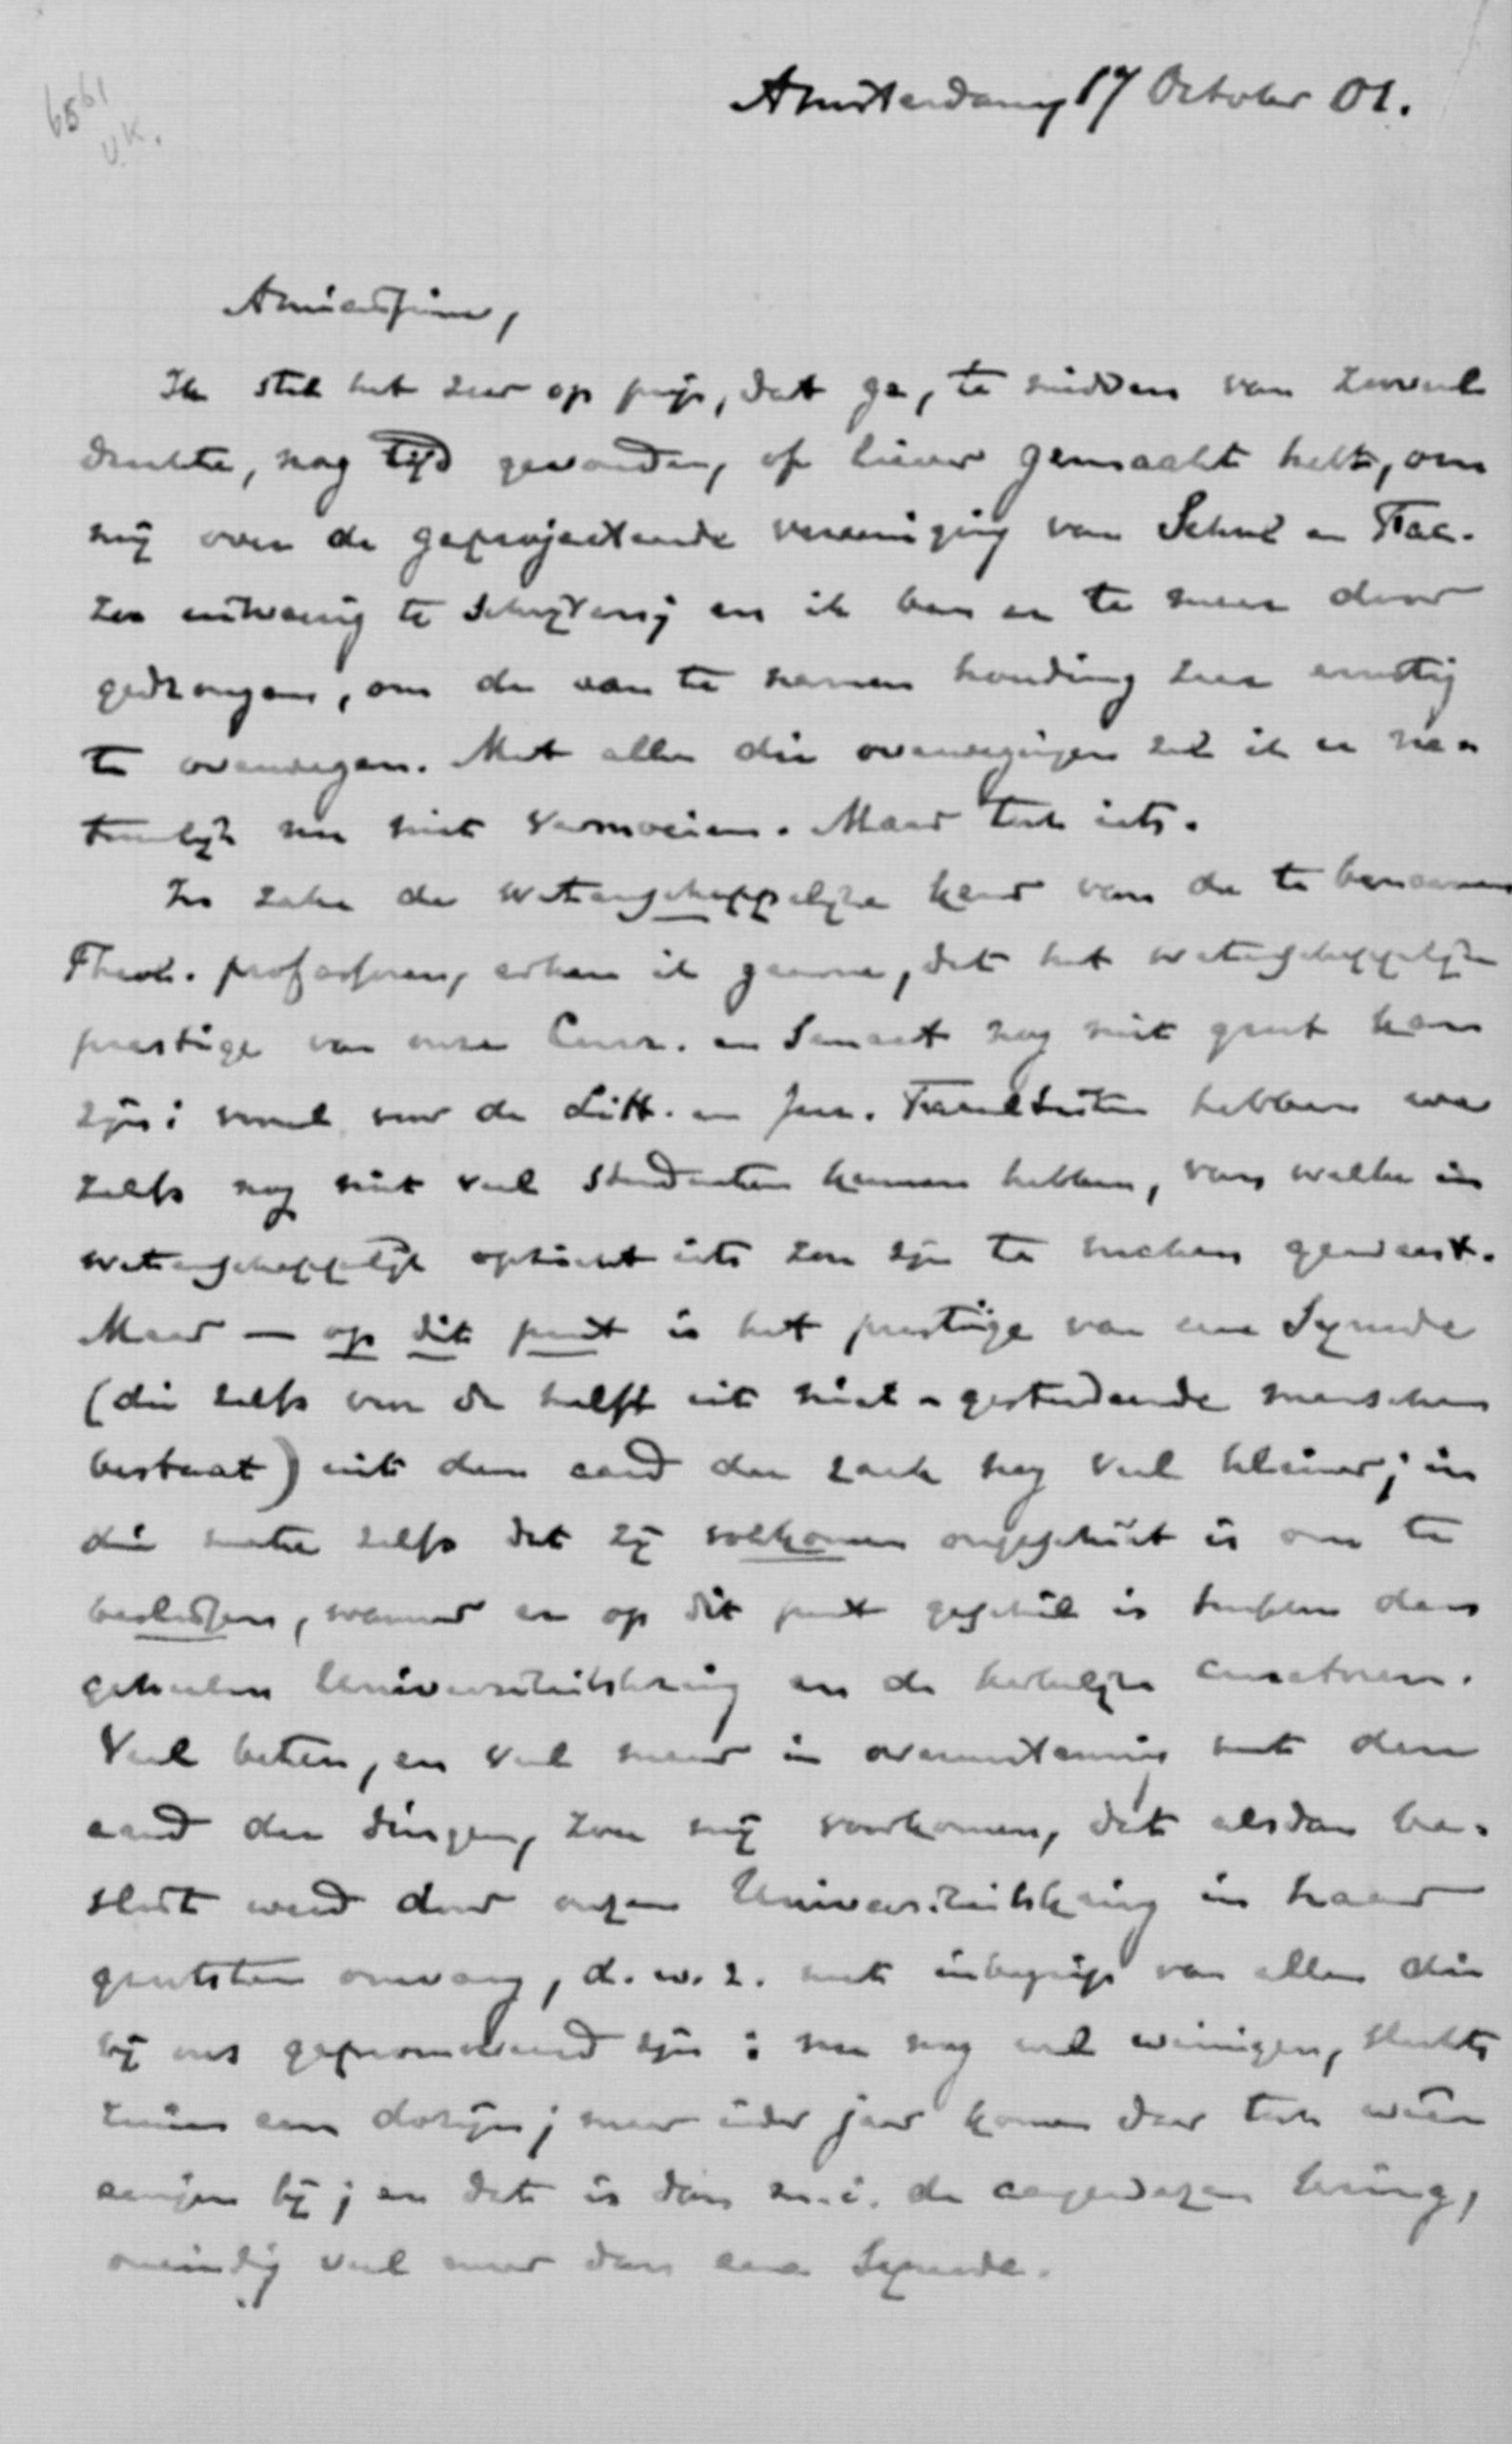 6561
U.K.
Amsterdam, 17 October 01.
Amicissime,
Ik stel het zeer op prijs, dat ge, te midden van zooveel
drukte, nog tijd gevonden, of liever gemaakt hebt, om
mij over de geprojecteerde vereeniging van School en Fac.
zoo uitvoerig te schrijven; en ik ben er te meer door
gedrongen, om de aan te nemen houding zeer ernstig
te overwegen. Met alle die overwegingen zal ik u na-
tuurlijk nu niet vermoeien. Maar toch iets.
In zake de wetenschappelijke keur van de te benoemen
Theol. professoren, erken ik gaarne, dat het wetenschappelijke
prestige van onze Cur. en Senaat nog niet groot kan
zijn: vooral voor de Litt. en Jur. Faculteiten hebben we
zelfs nog niet veel studenten kunnen hebben, van welke in
wetenschappelijk opzicht iets zou zijn te maken geweest.
Maar — op dit punt is het prestige van eene Synode
(die zelfs voor de helft uit niet-gestudeerde menschen
bestaat) uit den aard der zaak nog veel kleiner; in
die mate zelfs dat zij volkomen ongeschikt is om te
beslissen, wanneer er op dit punt geschil is tusschen den
geheelen Universiteitskring en de kerkelijke curatoren.
Veel beter, en veel meer in overeenstemming met den
aard der dingen, zou mij voorkomen, dat alsdan be-
slist werd door onzen Universiteitskring in haar
grootsten omvang, d.w.z. met inbegrip van allen die
bij ons gepromoveerd zijn: nu nog wel weinigen, slechts
ruim een dozijn; maar ieder jaar komen daar toch weer
eenigen bij; en dat is dan m.i. de aangewezen kring,
oneindig veel meer dan eene Synode.